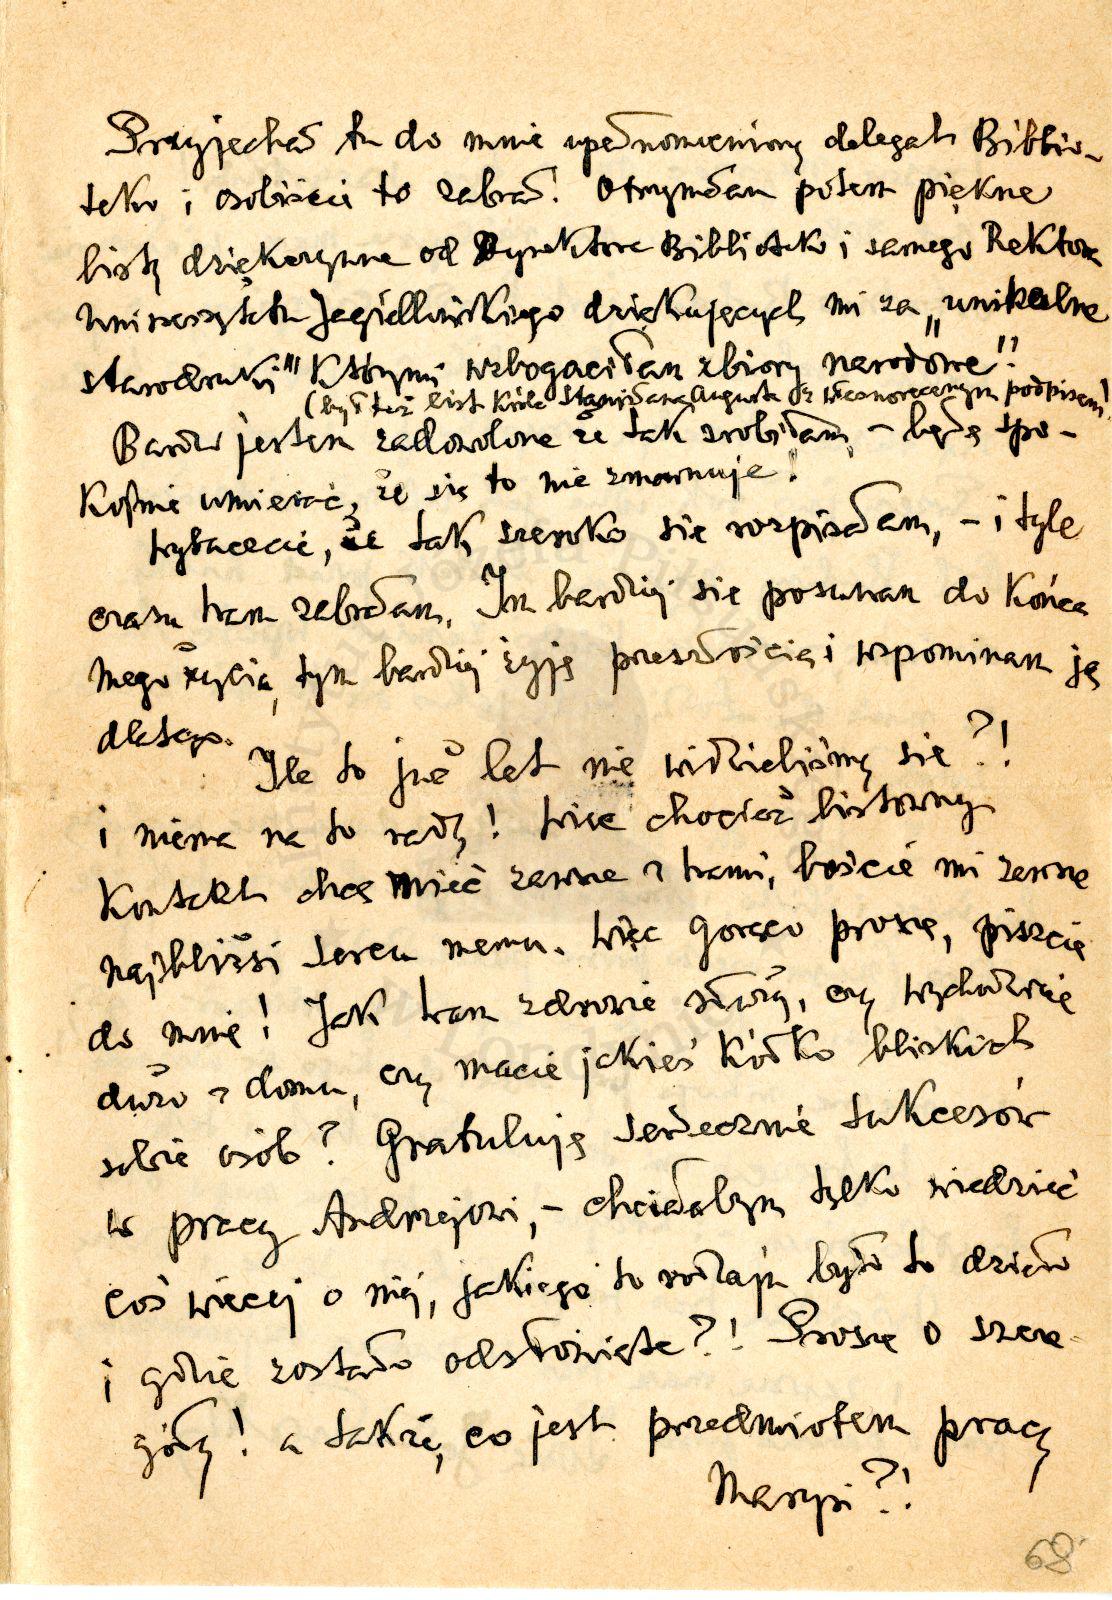 Przyjechał tu do mnie upełnomocniony delegat Biblio-
teki i osobiście to zabrał! Otrzymałam potem piękne
listy dziękczynne od Dyrektora Biblioteki i samego Rektora
Uniwersytetu Jagiellońskiego dziękujących mi za „unikalne
starodruki" którymi wzbogaciłam zbiory narodowe"!
(był też list Króla Stanisława Augusta z własnoręcznym podpisem!)
Bardzo jestem zadowolona że tak zrobiłam, – będę spo-
kojnie umierać, że się to nie zmarnuje!
Wybaczcie, że tak szeroko się rozpisałam, – i tyle
czasu Wam zabrałam. Im bardziej się posuwam do końca
mego życia, tym bardziej żyję przeszłością i wspominam ją
dlatego.
Ile to już lat nie widzieliśmy się?!
i niema na to rady! Więc chociaż listowny
kontakt chcę mieć zawsze z Wami, boście mi zawsze
najbliżsi sercu memu. Więc gorąco proszę, piszcie
do mnie! Jak Wam zdrowie służy, czy wychodzicie
dużo z domu, czy macie jakieś kółko bliskich
sobie osób? Gratuluję serdecznie sukcesów
w pracy Andrzejowi, – chciałabym tylko wiedzieć
coś więcej o niej, jakiego to rodzaju było to dzieło
i gdzie zostało odsłonięte?! Proszę o szcze-
góły! a także, co jest przedmiotem pracy
Marysi?!
68